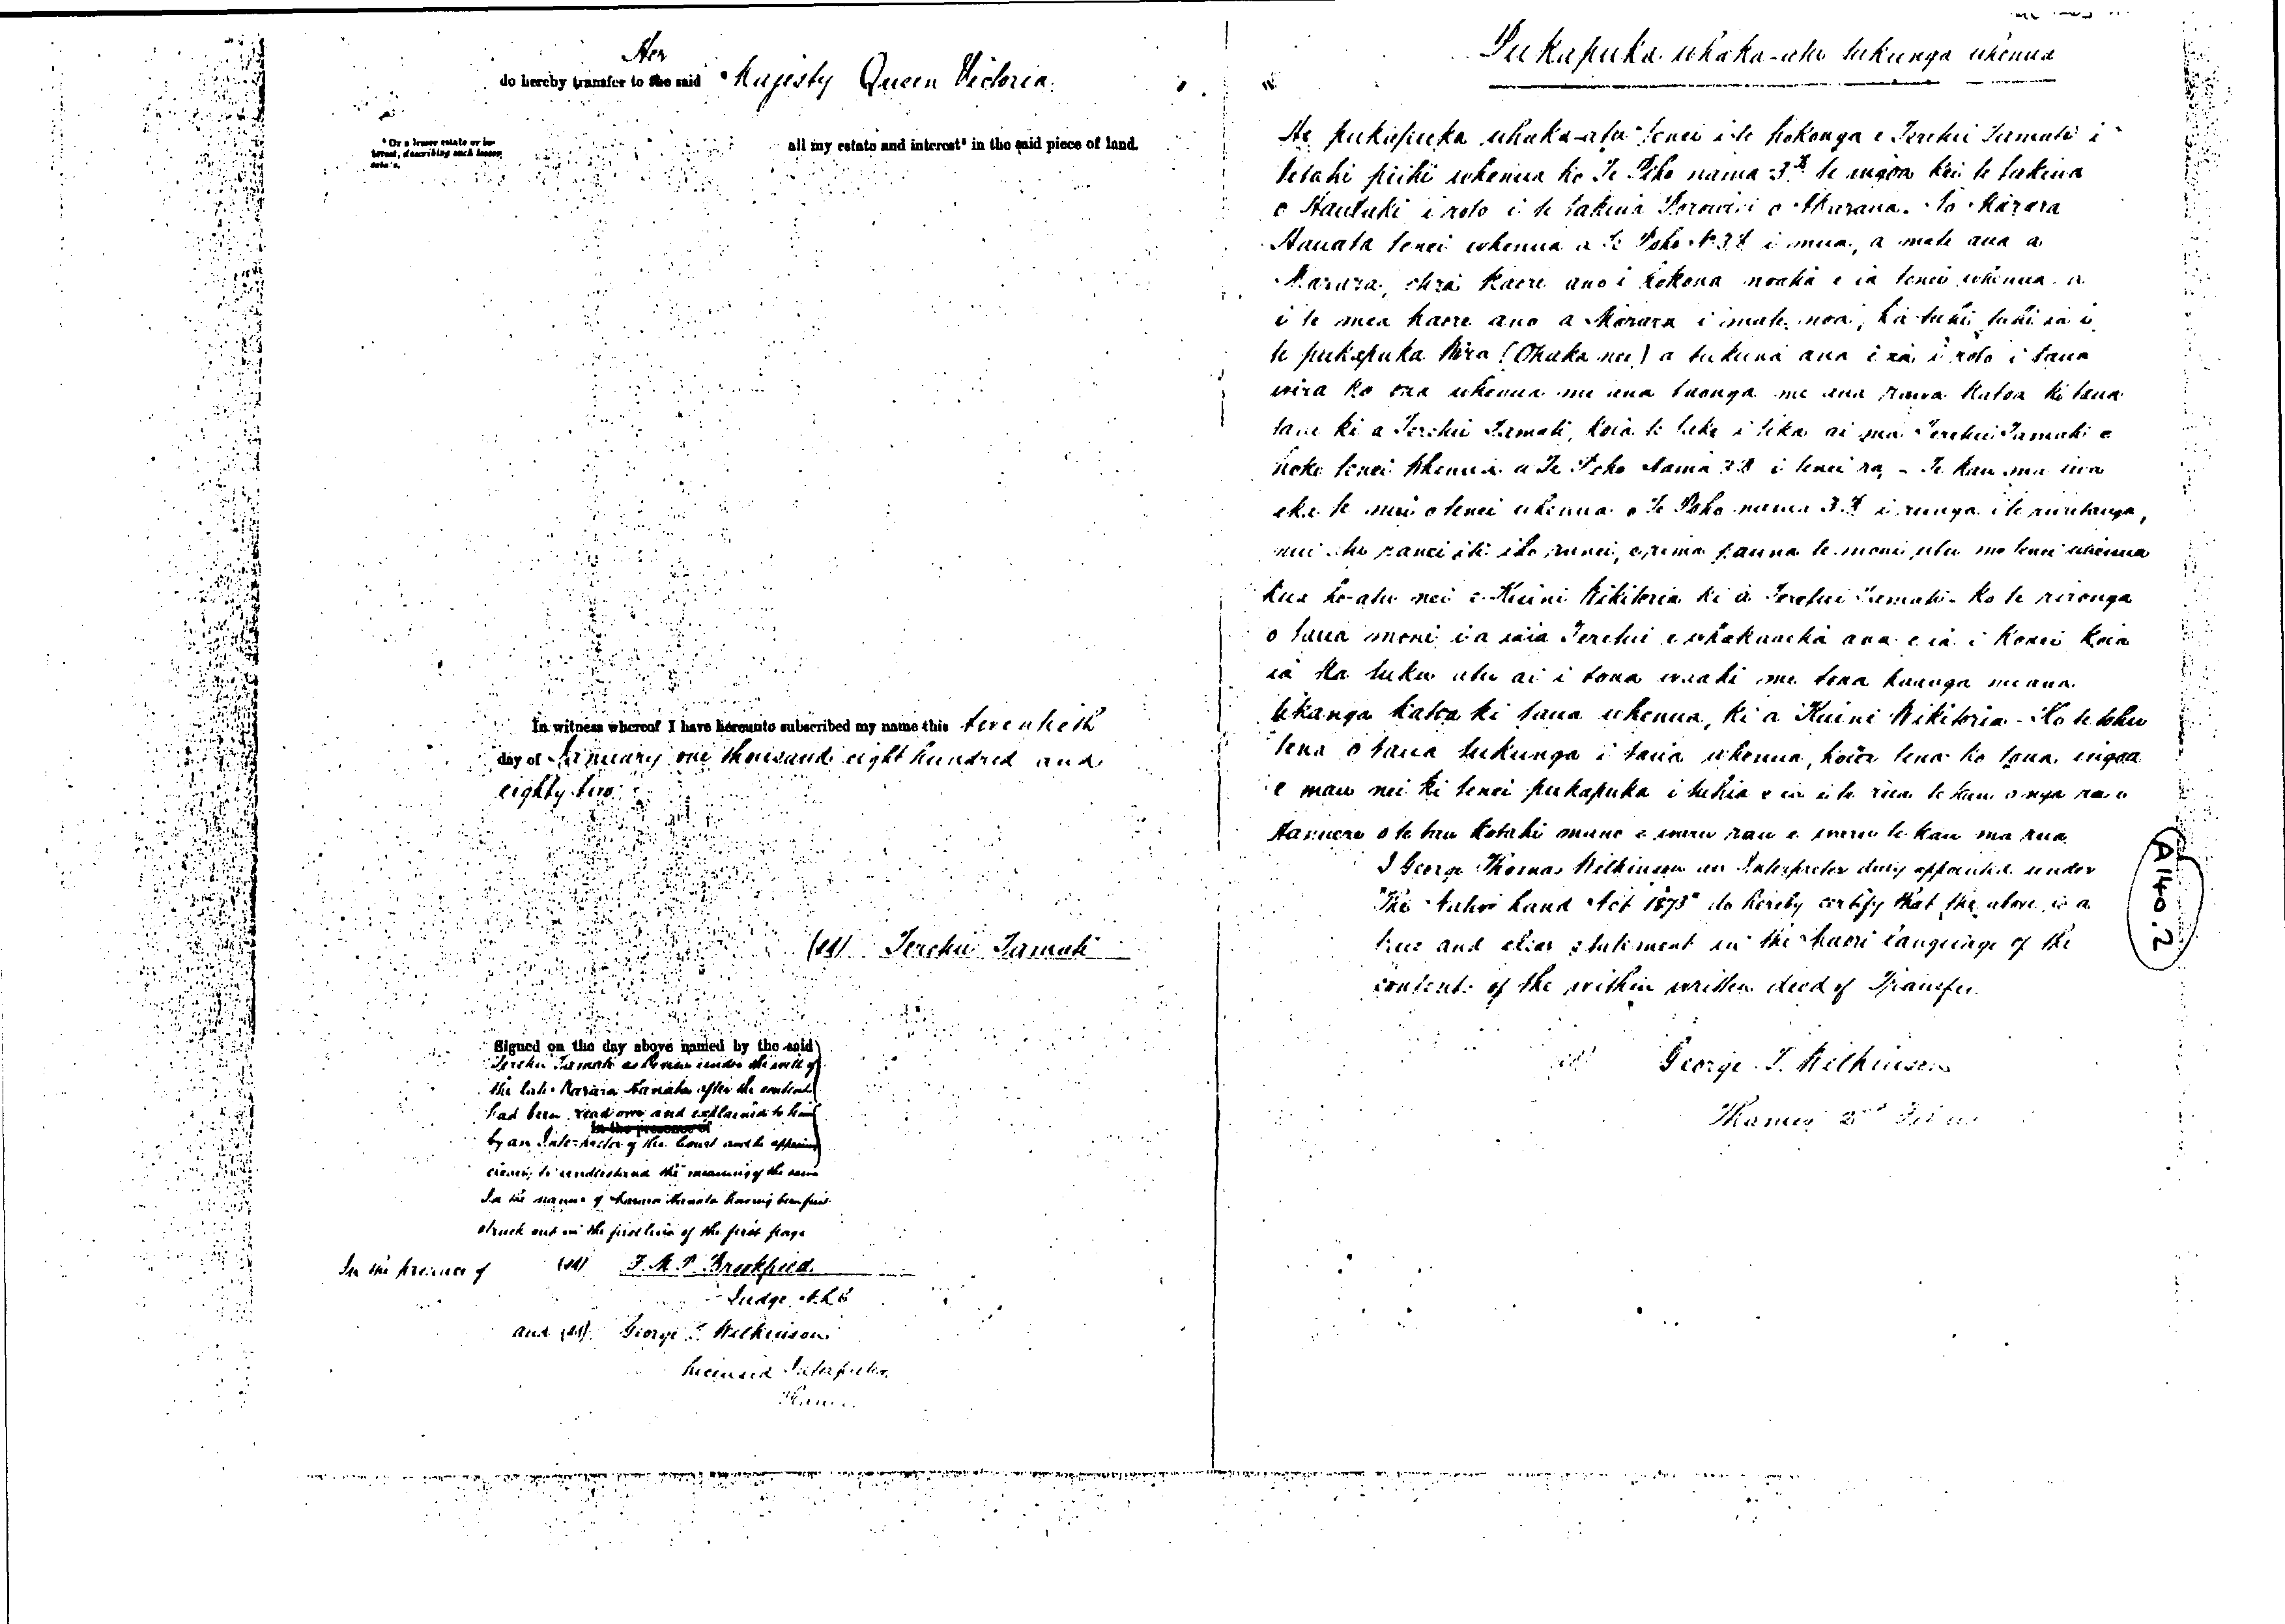 Her
do hereby transfer to the said Majesty Queen Victoria
* Or a lesser estate or in-
terest, describing such lesser
estate.
all my estate and interest* in the said piece of land.
In witness whereof I have hereunto subscribed my name this twentieth
day of January one thousand eight hundred and
eighty two
(sd) Terehu Tamati
Signed on the day above named by the said
Terehu Tamati as Devisee under the will of
the late Marara Hanata after the contents
had been read over and explained to him
in the presence of
by an Interpreter of the Court and he appearing
clearly to understand the meaning of the same
In the name of Marara Hanata having been first
struck out in the first line of the first page
In the presence of (sd) F. M. P. Brookfield
Judge N.L.C
and (sd) George T. Wilkinson
Licensed Interpreter
Thames
Pukapuka whaka-atu tukunga whenua
He pukapuka whaka-atu tenei i te hokonga e Terehu Tamati i
tetahi piihi whenua ko Te Poho nama 3B te ingoa kei te takiwa
o Hauraki i roto i te takiwa Porowini o Akarana. No Marara
Hanata tenei whenua a Te Poho No 3B i mua, a mate ana a
Marara, otira kaore ano i hokona noatia e ia tenei whenua a
i te mea kaore ano a Marara i mate noa, ka tuhi tuhi ia i
te pukapuka Wira (Ohaka nei) a tukuna ana i ia i roto i taua
wira ko ona whenua me ana taonga me ana rawa katoa ki tana
tane ki a Terehu Tamati, koia te take i tika ai ma Terehu Tamati e
hoko tenei whenua a Te Poho Nama 3B i tenei ra, - Te kau ma iwa
eka te nui o tenei whenua o Te Poho nama 3B i runga i te ruritanga,
nui atu ranei iti iho ranei, e rima pauna te moni utu mo tenei whenua
kua ho-atu nei e Kuini Wikitoria ki a Terehu Tamati - Ko te rironga
o taua moni i a ia a Terehu e whakaaetia ana e ia i konei koia
ia ka tuku atu ai i tona waahi me tona paanga me ana
tikanga katoa ki taua whenua, ki a Kuini Wikitoria - Ko te tohu
tena o tana tukunga i taua whenua, koia tena ko tona ingoa
e mau nei ki tenei pukapuka i tuhia e ia i te rua te kau o nga ra o
Hanuere o te tau kotahi mano e waru rau e waru te kau ma rua
I George Thomas Wilkinson an Interpreter duly appointed under
"The Native Land Act 1873" do hereby certify that the above is a
true and clear statement in the Maori language of the
contents of the within written deed of Transfer.
(sd) George T. Wilkinson
Thames
A 140.2